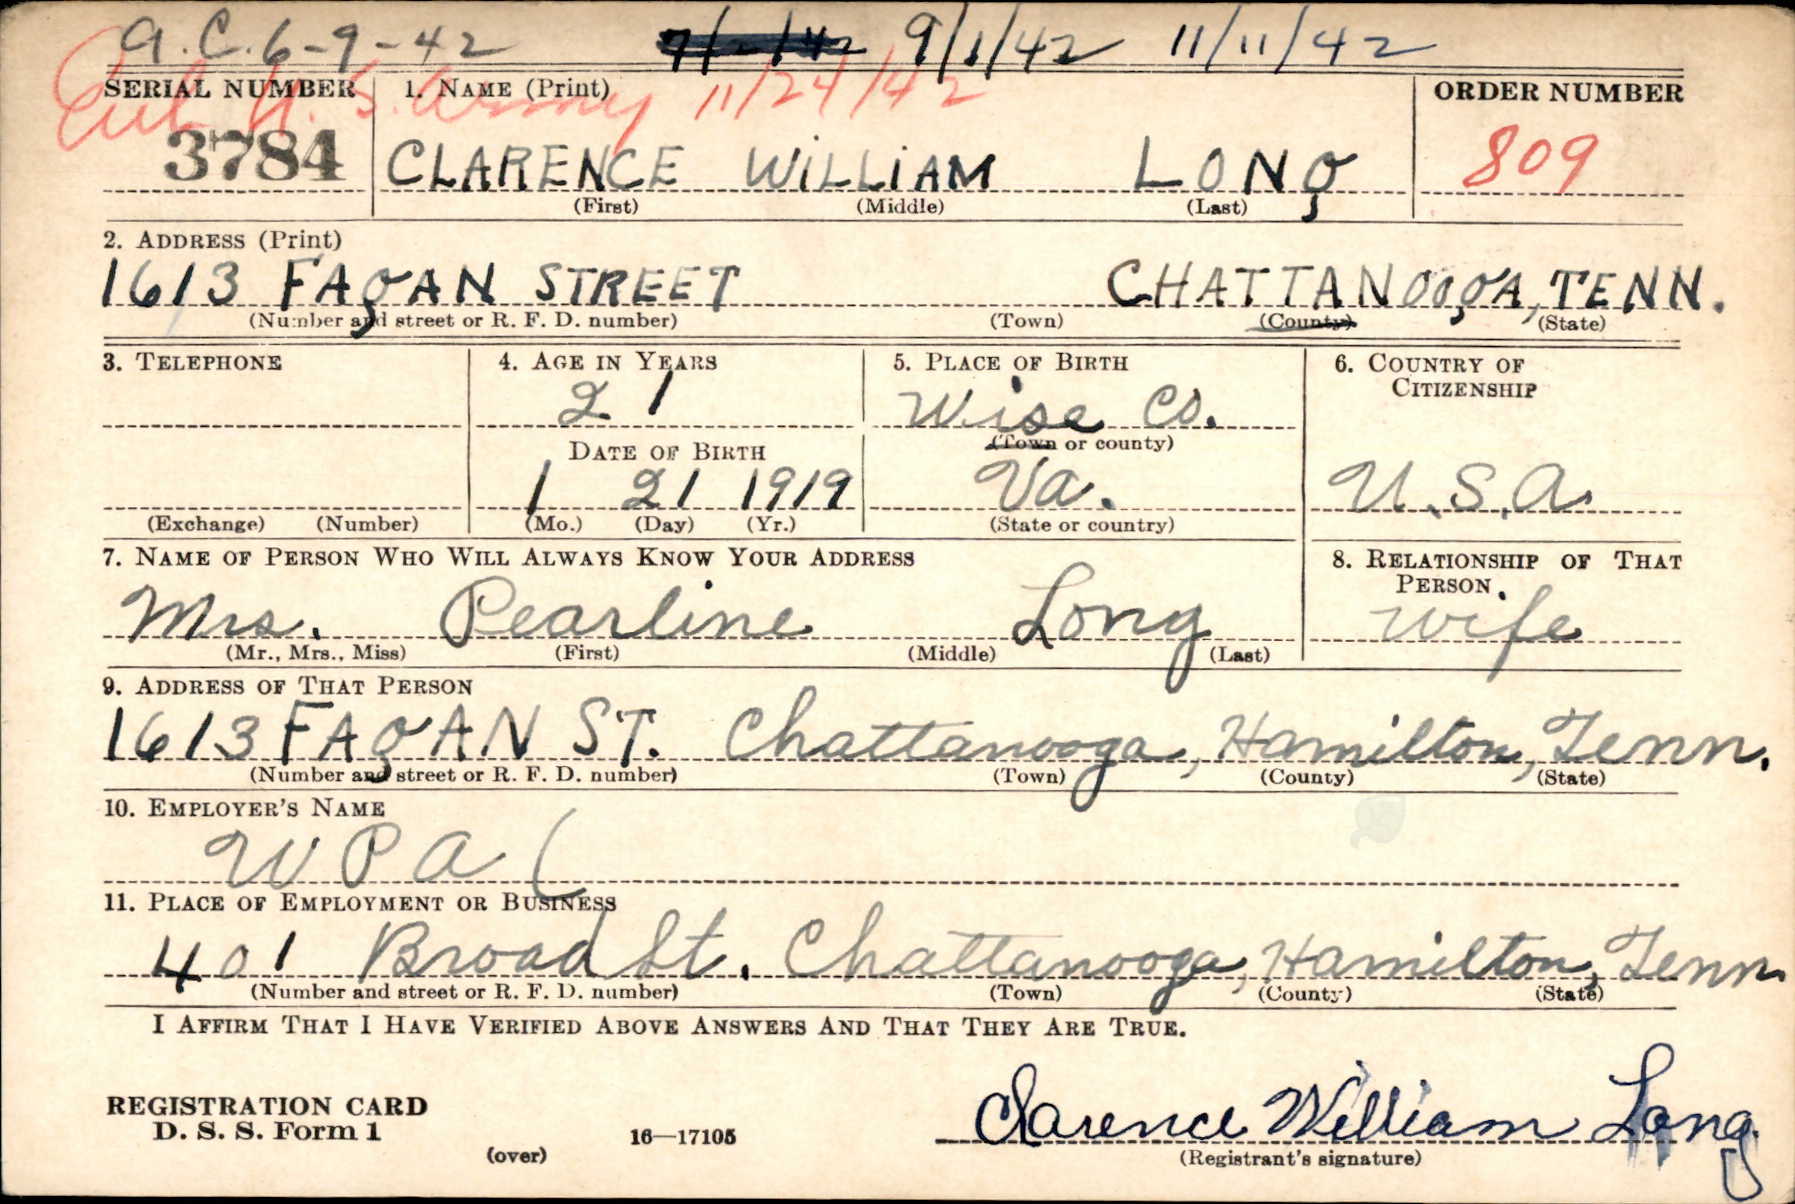 A.C. 6-9-42 9/1/42 11/11/42
Enl. U.S. Army 11/24/42
SERIAL NUMBER 1. NAME (Print) ORDER NUMBER
3784 CLARENCE WILLIAM LONG 809
(First) (Middle) (Last)
2. ADDRESS (Print)
1613 FAGAN STREET CHATTANOOGA, TENN.
(Number and street or R. F. D. number) (Town) (County) (State)
3. TELEPHONE 4. AGE IN YEARS 5. PLACE OF BIRTH 6. COUNTRY OF CITIZENSHIP
21 Wise Co.
DATE OF BIRTH (Town or county)
1 21 1919 Va. U.S.A.
(Exchange) (Number) (Mo.) (Day) (Yr.) (State or country)
7. NAME OF PERSON WHO WILL ALWAYS KNOW YOUR ADDRESS 8. RELATIONSHIP OF THAT PERSON
Mrs. Pearline Long wife
(Mr., Mrs., Miss) (First) (Middle) (Last)
9. ADDRESS OF THAT PERSON
1613 FAGAN ST. Chattanooga, Hamilton, Tenn.
(Number and street or R. F. D. number) (Town) (County) (State)
10. EMPLOYER'S NAME
WPA (
11. PLACE OF EMPLOYMENT OR BUSINESS
401 Broad St. Chattanooga, Hamilton, Tenn.
(Number and street or R. F. D. number) (Town) (County) (State)
I AFFIRM THAT I HAVE VERIFIED ABOVE ANSWERS AND THAT THEY ARE TRUE.
REGISTRATION CARD
D. S. S. Form 1 Clarence William Long
(over) 16—17105 (Registrant's signature)